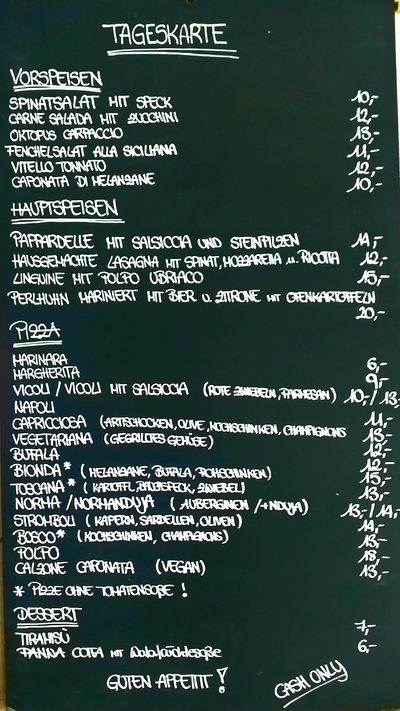 TAGESKARTE
VORSPEISEN
SPINATSALAT MIT SPECK 10,-
CARNE SALADA MIT ZUCCHINI 12,-
OKTOPUS CARPACCIO 13,-
FENCHELSALAT ALLA SICILIANA 11,-
VITELLO TONNATO 12,-
CAPONATA DI MELANZANE 10,-
HAUPTSPEISEN
PAPPARDELLE MIT SALSICCIA UND STEINPILZEN 14,-
HAUSGEMACHTE LASAGNA MIT SPINAT, MOZZARELLA u. RICOTTA 12,-
LINGUINE MIT POLPO UBRIACO 15,-
PERLHUHN MARINIERT MIT BIER U. ZITRONE MIT OFENKARTOFFELN
20,-
PIZZA
MARINARA 6,-
MARGHERITA 9,-
VICOLI / VICOLI MIT SALSICCIA (ROTE ZWIEBELN, PARMESAN) 10,-/13,-
NAPOLI 11,-
CAPRICCIOSA (ARTISCHOCKEN, OLIVE, KOCHSCHINKEN, CHAMPIGNONS 13,-
VEGETARIANA (GEGRILLTES GEMÜSE) 12,-
BUFALA 12,-
BIONDA* (MELANZANE, BUFALA, ROHSCHINKEN) 15,-
TOSCANA* (KARTOFFL, BAUCHSPECK, ZWIEBEL) 13,-
NORMA / NORMANDUJA (AUBERGINEN /+NDUJA) 13,-/14,-
STROMBOLI (KAPERN, SARDELLEN, OLIVEN) 14,-
BOSCO* (KOCHSCHINKEN, CHAMPIGNONS) 13,-
POLPO 18,-
CALZONE CAPONATA (VEGAN) 13,-
* PIZZE OHNE TOMATENSOßE !
DESSERT
TIRAMISÙ 7,-
PANNA COTTA MIT 6,-
GUTEN APPETIT !
CASH ONLY